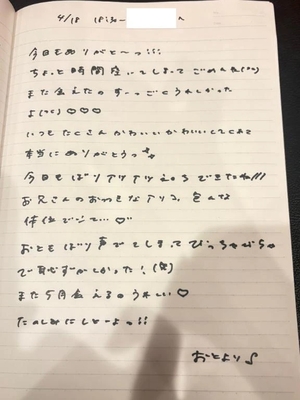 4/18 18:30- へ
今日もありがと〜っ!!!
ちょっと時間空いてしまってごめんね
また会えたのすーっごくうれしかった
よ ♡♡♡
いつもたくさんかわいいかわいいしてくれて
本当にありがとうっ
今日もばりアツアツえっちできたね///
お兄さんのおっきな 色んな
体位で ♡
おともばり声でてしまってびっちゃびちゃ
で恥ずかしかった!(笑)
また5月会えるのうれしい♡
たのしみにしとーよっ!!
おとより♪